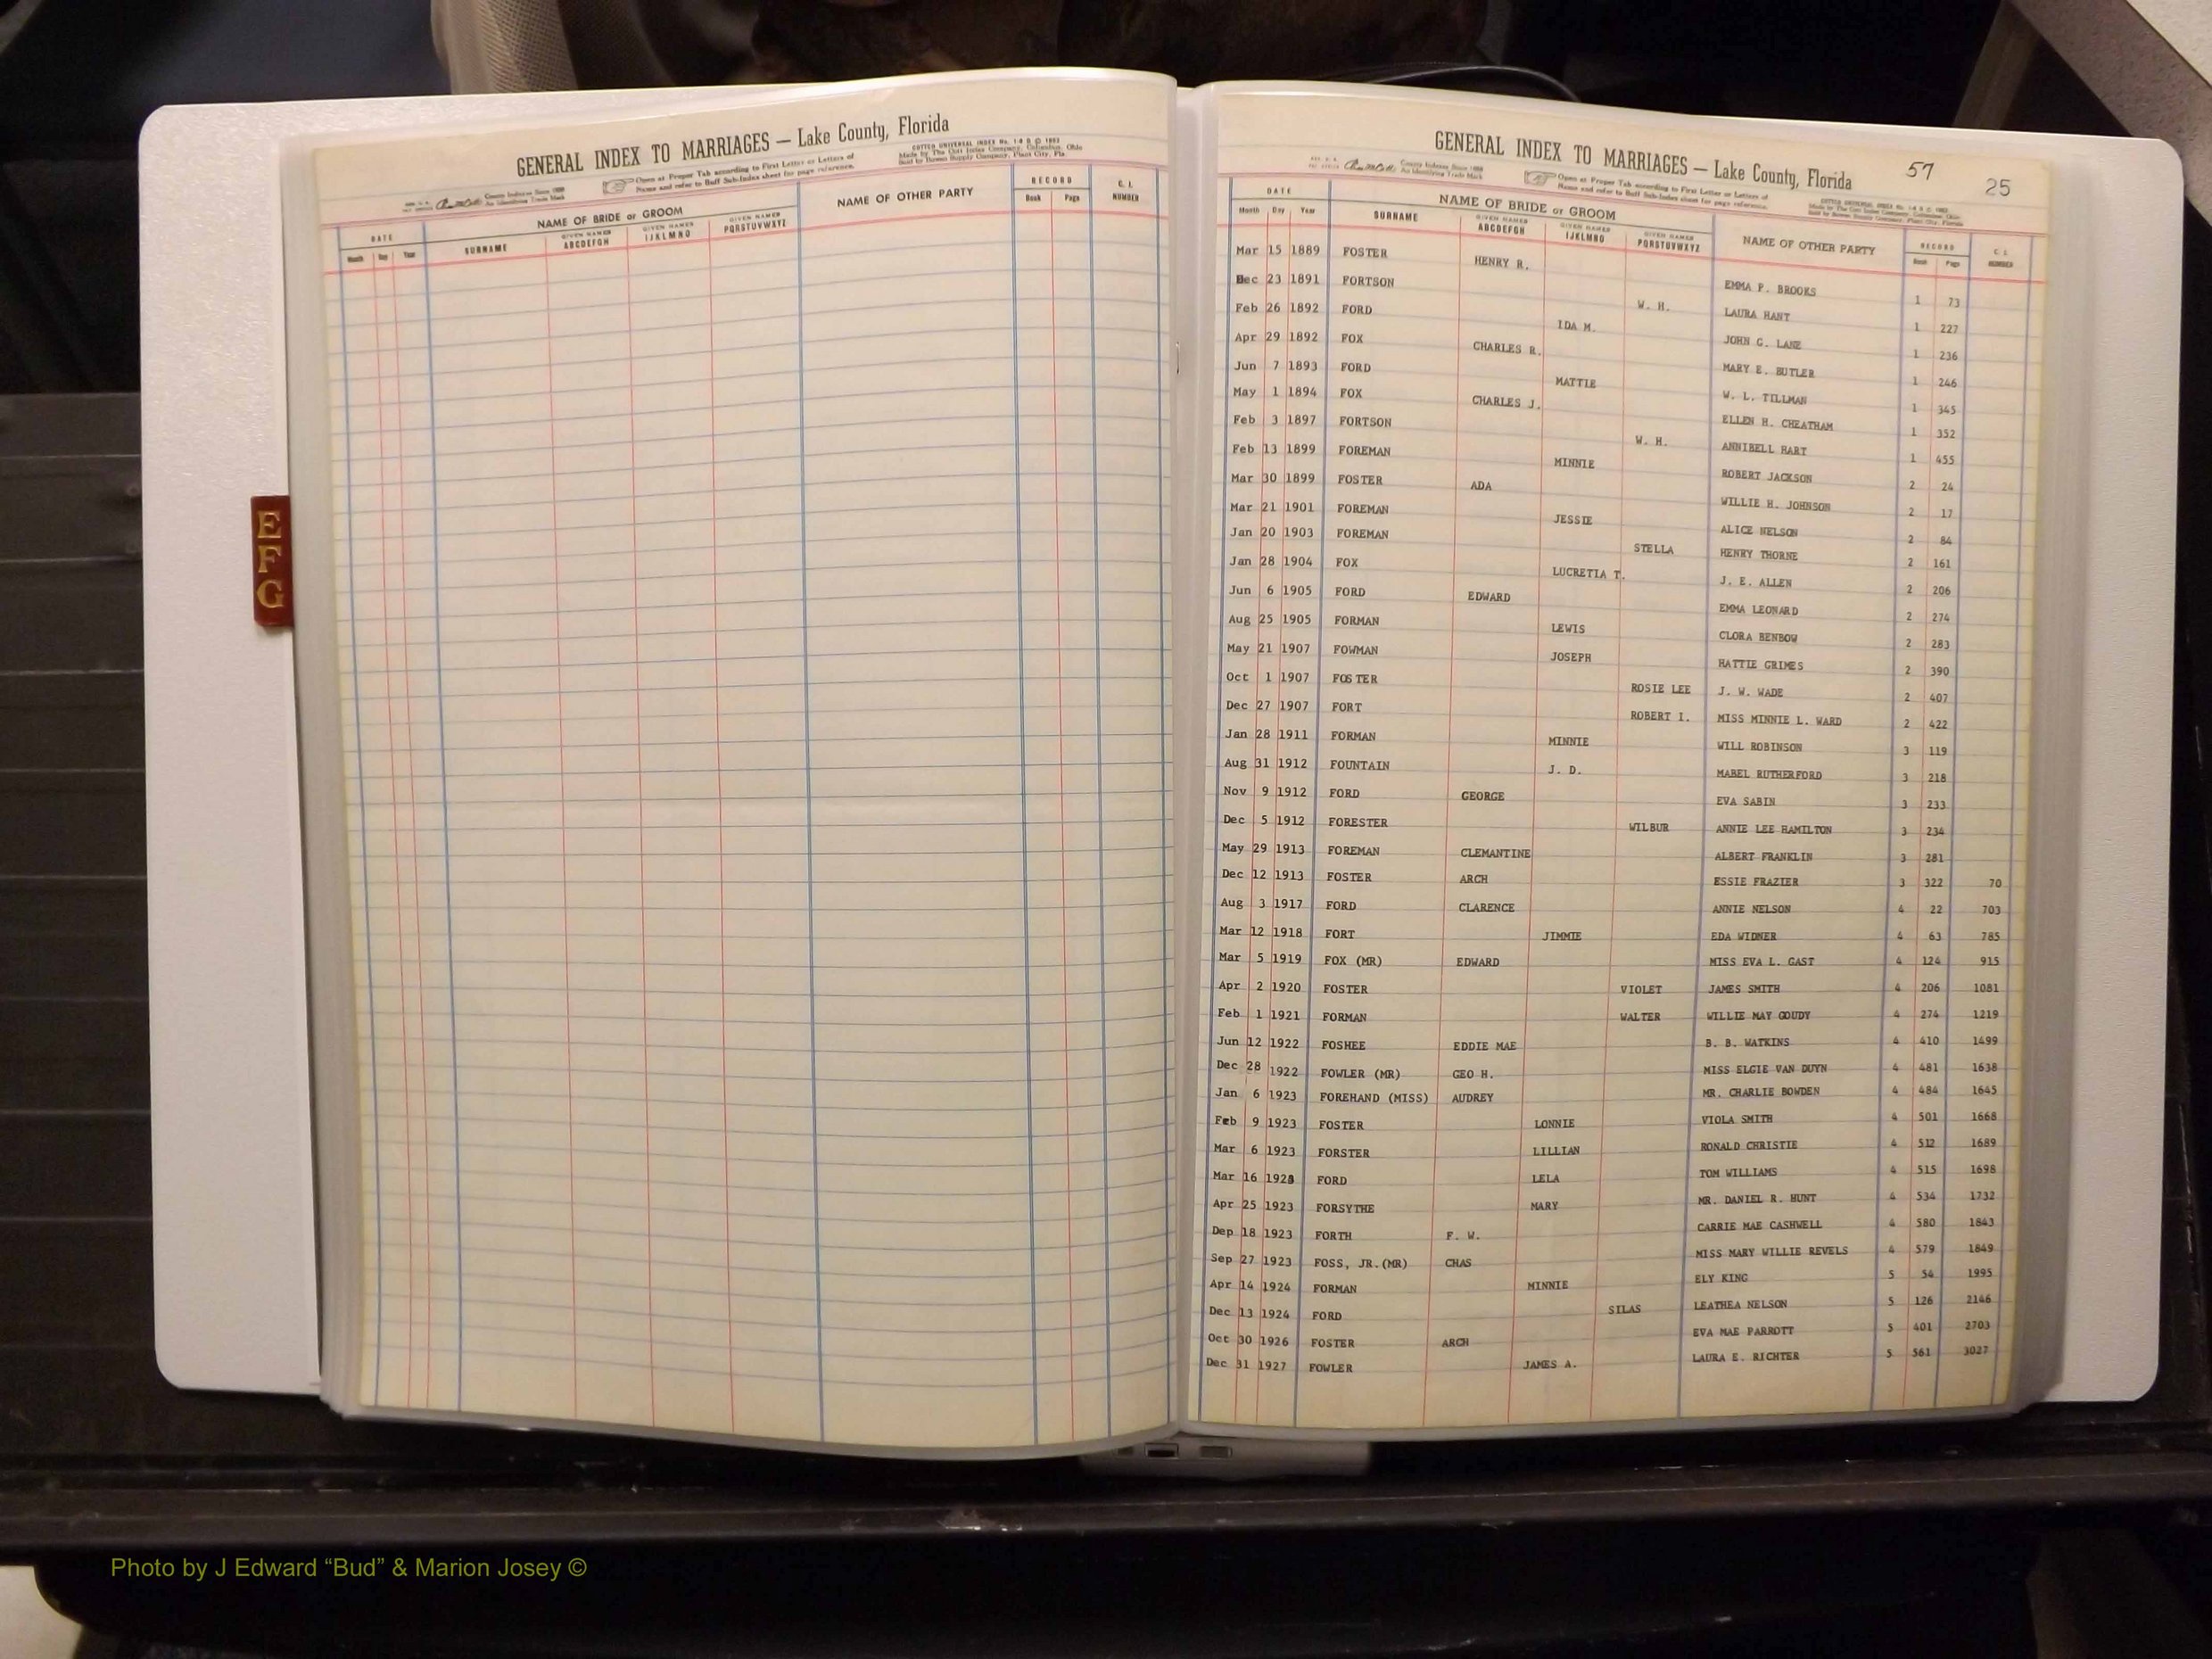 GENERAL INDEX TO MARRIAGES — Lake County, Florida
COTTCO UNIVERSAL INDEX No. 1-9 D © 1963
Made by The Cott Index Company, Columbus, Ohio
Sold by Bowen Supply Company, Plant City, Fla.
County Indexes Since 1888
An Identifying Trade Mark
Open at Proper Tab according to First Letter or Letters of
Name and refer to Buff Sub-Index sheet for page reference.
DATE NAME OF BRIDE or GROOM NAME OF OTHER PARTY RECORD C. I. NUMBER
Month Day Year SURNAME GIVEN NAMES ABCDEFGH GIVEN NAMES IJKLMNO GIVEN NAMES PQRSTUVWXYZ Book Page
E
F
G
GENERAL INDEX TO MARRIAGES — Lake County, Florida 57 25
County Indexes Since 1888
An Identifying Trade Mark
Open at Proper Tab according to First Letter or Letters of
Name and refer to Buff Sub-Index sheet for page reference.
DATE NAME OF BRIDE or GROOM NAME OF OTHER PARTY RECORD C. I. NUMBER
Month Day Year SURNAME GIVEN NAMES ABCDEFGH GIVEN NAMES IJKLMNO GIVEN NAMES PQRSTUVWXYZ Book Page
Mar 15 1889 FOSTER HENRY R. EMMA P. BROOKS 1 73
Dec 23 1891 FORTSON W. H. LAURA HANT 1 227
Feb 26 1892 FORD IDA M. JOHN G. LANE 1 236
Apr 29 1892 FOX CHARLES R. MARY E. BUTLER 1 246
Jun 7 1893 FORD MATTIE W. L. TILLMAN 1 345
May 1 1894 FOX CHARLES J. ELLEN H. CHEATHAM 1 352
Feb 3 1897 FORTSON W. H. ANNIBELL HART 1 455
Feb 13 1899 FOREMAN MINNIE ROBERT JACKSON 2 24
Mar 30 1899 FOSTER ADA WILLIE H. JOHNSON 2 17
Mar 21 1901 FOREMAN JESSIE ALICE NELSON 2 84
Jan 20 1903 FOREMAN STELLA HENRY THORNE 2 161
Jan 28 1904 FOX LUCRETIA T. J. E. ALLEN 2 206
Jun 6 1905 FORD EDWARD EMMA LEONARD 2 274
Aug 25 1905 FORMAN LEWIS CLORA BENBOW 2 283
May 21 1907 FOWMAN JOSEPH HATTIE GRIMES 2 390
Oct 1 1907 FOSTER ROSIE LEE J. W. WADE 2 407
Dec 27 1907 FORT ROBERT I. MISS MINNIE L. WARD 2 422
Jan 28 1911 FORMAN MINNIE WILL ROBINSON 3 119
Aug 31 1912 FOUNTAIN J. D. MABEL RUTHERFORD 3 218
Nov 9 1912 FORD GEORGE EVA SABIN 3 233
Dec 5 1912 FORESTER WILBUR ANNIE LEE HAMILTON 3 234
May 29 1913 FOREMAN CLEMANTINE ALBERT FRANKLIN 3 281
Dec 12 1913 FOSTER ARCH ESSIE FRAZIER 3 322 70
Aug 3 1917 FORD CLARENCE ANNIE NELSON 4 22 703
Mar 12 1918 FORT JIMMIE EDA WIDNER 4 63 785
Mar 5 1919 FOX (MR) EDWARD MISS EVA L. GAST 4 124 915
Apr 2 1920 FOSTER VIOLET JAMES SMITH 4 206 1081
Feb 1 1921 FORMAN WALTER WILLIE MAY GOUDY 4 274 1219
Jun 12 1922 FOSHEE EDDIE MAE B. B. WATKINS 4 410 1499
Dec 28 1922 FOWLER (MR) GEO H. MISS ELGIE VAN DUYN 4 481 1638
Jan 6 1923 FOREHAND (MISS) AUDREY MR. CHARLIE BOWDEN 4 484 1645
Feb 9 1923 FOSTER LONNIE VIOLA SMITH 4 501 1668
Mar 6 1923 FORSTER LILLIAN RONALD CHRISTIE 4 512 1689
Mar 16 1923 FORD LELA TOM WILLIAMS 4 515 1698
Apr 25 1923 FORSYTHE MARY MR. DANIEL R. HUNT 4 534 1732
Dep 18 1923 FORTH F. W. CARRIE MAE CASHWELL 4 580 1843
Sep 27 1923 FOSS, JR.(MR) CHAS MISS MARY WILLIE REVELS 4 579 1849
Apr 14 1924 FORMAN MINNIE ELY KING 5 54 1995
Dec 13 1924 FORD SILAS LEATHEA NELSON 5 126 2146
Oct 30 1926 FOSTER ARCH EVA MAE PARROTT 5 401 2703
Dec 31 1927 FOWLER JAMES A. LAURA E. RICHTER 5 561 3027
Photo by J Edward “Bud” & Marion Josey ©